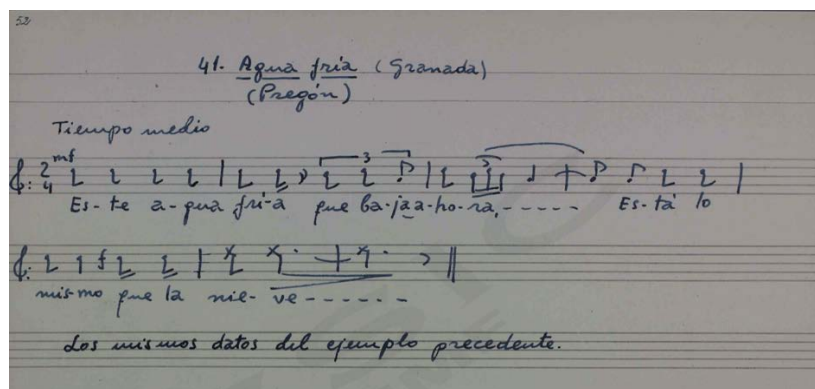 52
41. Agua fría (Granada)
(Pregón)
Tiempo medio
mf
2
4
3
3
Es-te a-gua frí-a que ba-ja a-ho-ra, - - - - - Es-tá lo
f
mis-mo que la nie-ve - - - - - -
Los mismos datos del ejemplo precedente.